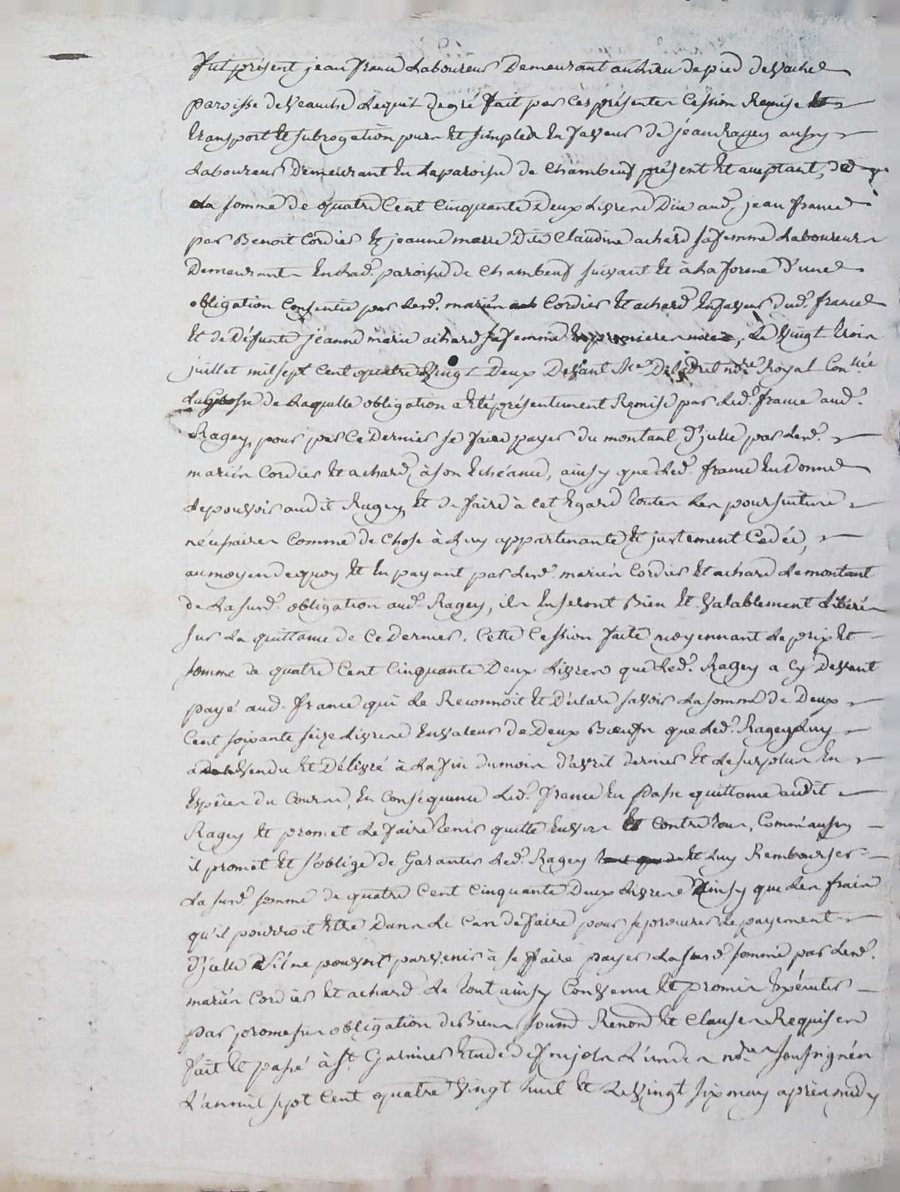 Fut présent jean france Laboureur Demeurant au Lieu de pied de vache
paroisse de Veauche Lequel de gré fait par ces présentes Cession Remise et
transport et subrogation pure et simple en faveur de jean Ragey aussy
Laboureur Demeurant en La paroisse de Chambeuf présent et acceptant, de
La somme de quatre Cent Cinquante Deux Livres Düe aud. jean france
par Benoit Cordier et jeanne marie Dite Claudine achard sa femme Laboureurs
Demeurants en lad. paroisse de Chambeuf suivant et à La forme d'une
obligation Consentie par Lesd. mariés Cordier et achard en faveur dud. france
et de Défunte jeanne marie achard sa femme en premieres noces, Le vingt trois
juillet mil sept Cent quatre vingt Deux Devant Me ndre Royal
La Grosse de Laquelle obligation a été présentement Remise par Led. france aud.
Ragey, pour par Ce Dernier se faire payer du montant d'jcelle par Lesd.
mariés Cordier et achard à son échéance, ainsy que Led. france en donne
Le pouvoir audit Ragey et de faire à cet égard toutes Les poursuittes
nécessaires Comme de Chose à Luy appartenante et justement Cedée,
au moyen de quoy et en payant par Lesd. mariés Cordier et achard Le montant
de La susd. obligation aud. Ragey, ils en seront Bien et valablement Libérés
sur La quittance de Ce Dernier. Cette Cession faite moyennant Le prix et
somme de quatre Cent Cinquante Deux Livres que Led. Ragey a cy Devant
payé aud. france qui Le Reconnoit et Déclare savoir La somme de Deux
Cent soixante seize Livres en valeur de Deux Bœufs que Led. Ragey Luy
a vendu et Délivré à La fin du mois d'avril dernier et Le surplus En
Espèces du Cours, En Conséquence Led. france En passe quittance audit
Ragey et promet Le faire tenir quitte Envers et Contre tous, Comme aussy
il promet et s'oblige de Garantir Led. Ragey et Luy Rembourser
La susd. somme de quatre Cent Cinquante Deux Livres ainsy que Les frais
qu'il pourroit être Dans Le Cas de faire pour se procurer Le payement
d'jcelle s'il ne pouvoit parvenir à se faire payer La susd. somme par Lesd.
mariés Cordier et achard Le tout ainsy Convenu et promis Exécuter
par promesses obligation de Biens soumd. Renond. et Clauses Requises
fait et passé à St. Galmier Etude d'Enjolr L'un des ndres soussignés
L'an mil sept Cent quatre vingt huit et Le vingt six may après midy